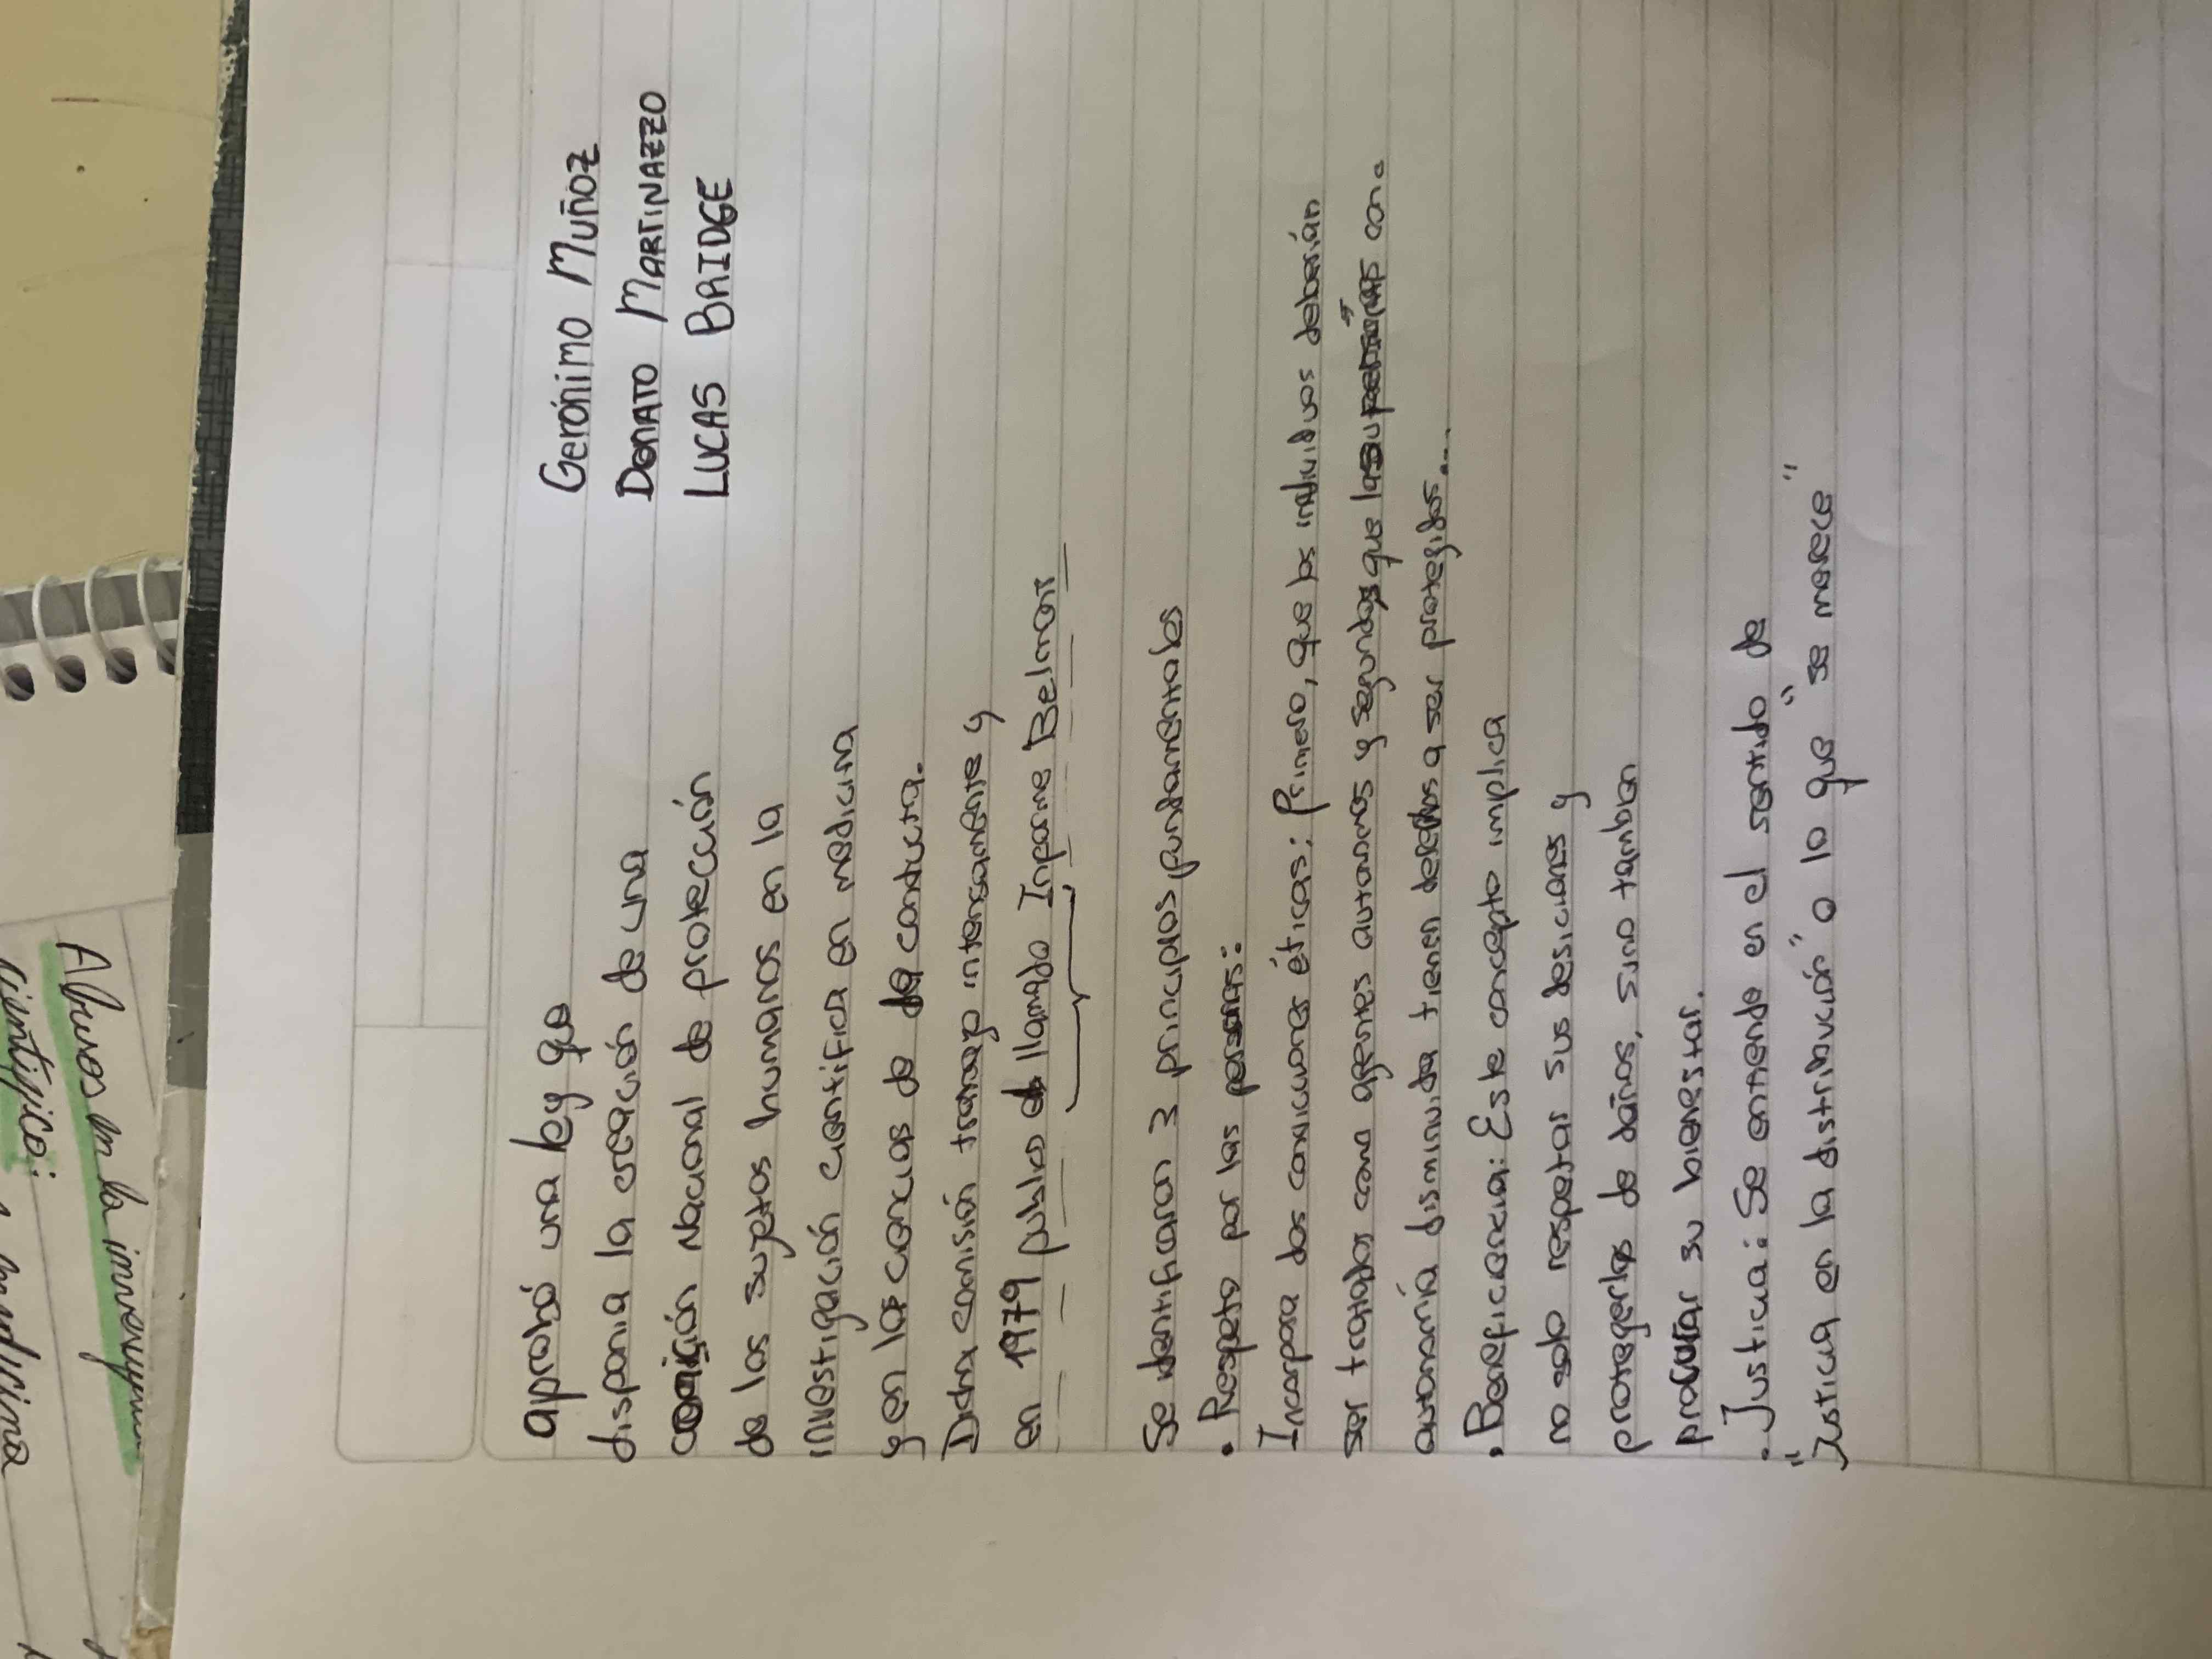 Gerónimo Muñoz
Donato Martinazzo
Lucas Bridge
aprobó una ley que
disponia la creación de una
comición Nacional de protección
de los sujetos humanos en la
investigación cientifica en medicina
y en las ciencias de la conducta.
Dicha comisión trabajo intensamente y
en 1979 publico el llamado Informe Belmont
Se identificaron 3 principios fundamentales
• Respeto por las personas:
Incorpora dos condiciones éticas; Primero, que los individuos deberían
ser tratados como agentes autonomos y segundo, que las personas con
autonomía disminuida tienen derechos a ser protegidos...
• Beneficiencia: Este concepto implica
no solo respetar sus desiciones y
protegerlos de daños, sino tambien
procurar su bienestar.
• Justicia: Se entiende en el sentido de
"Justicia en la distribución" o lo que "se merece"
Abusos en la
científico:
medicina